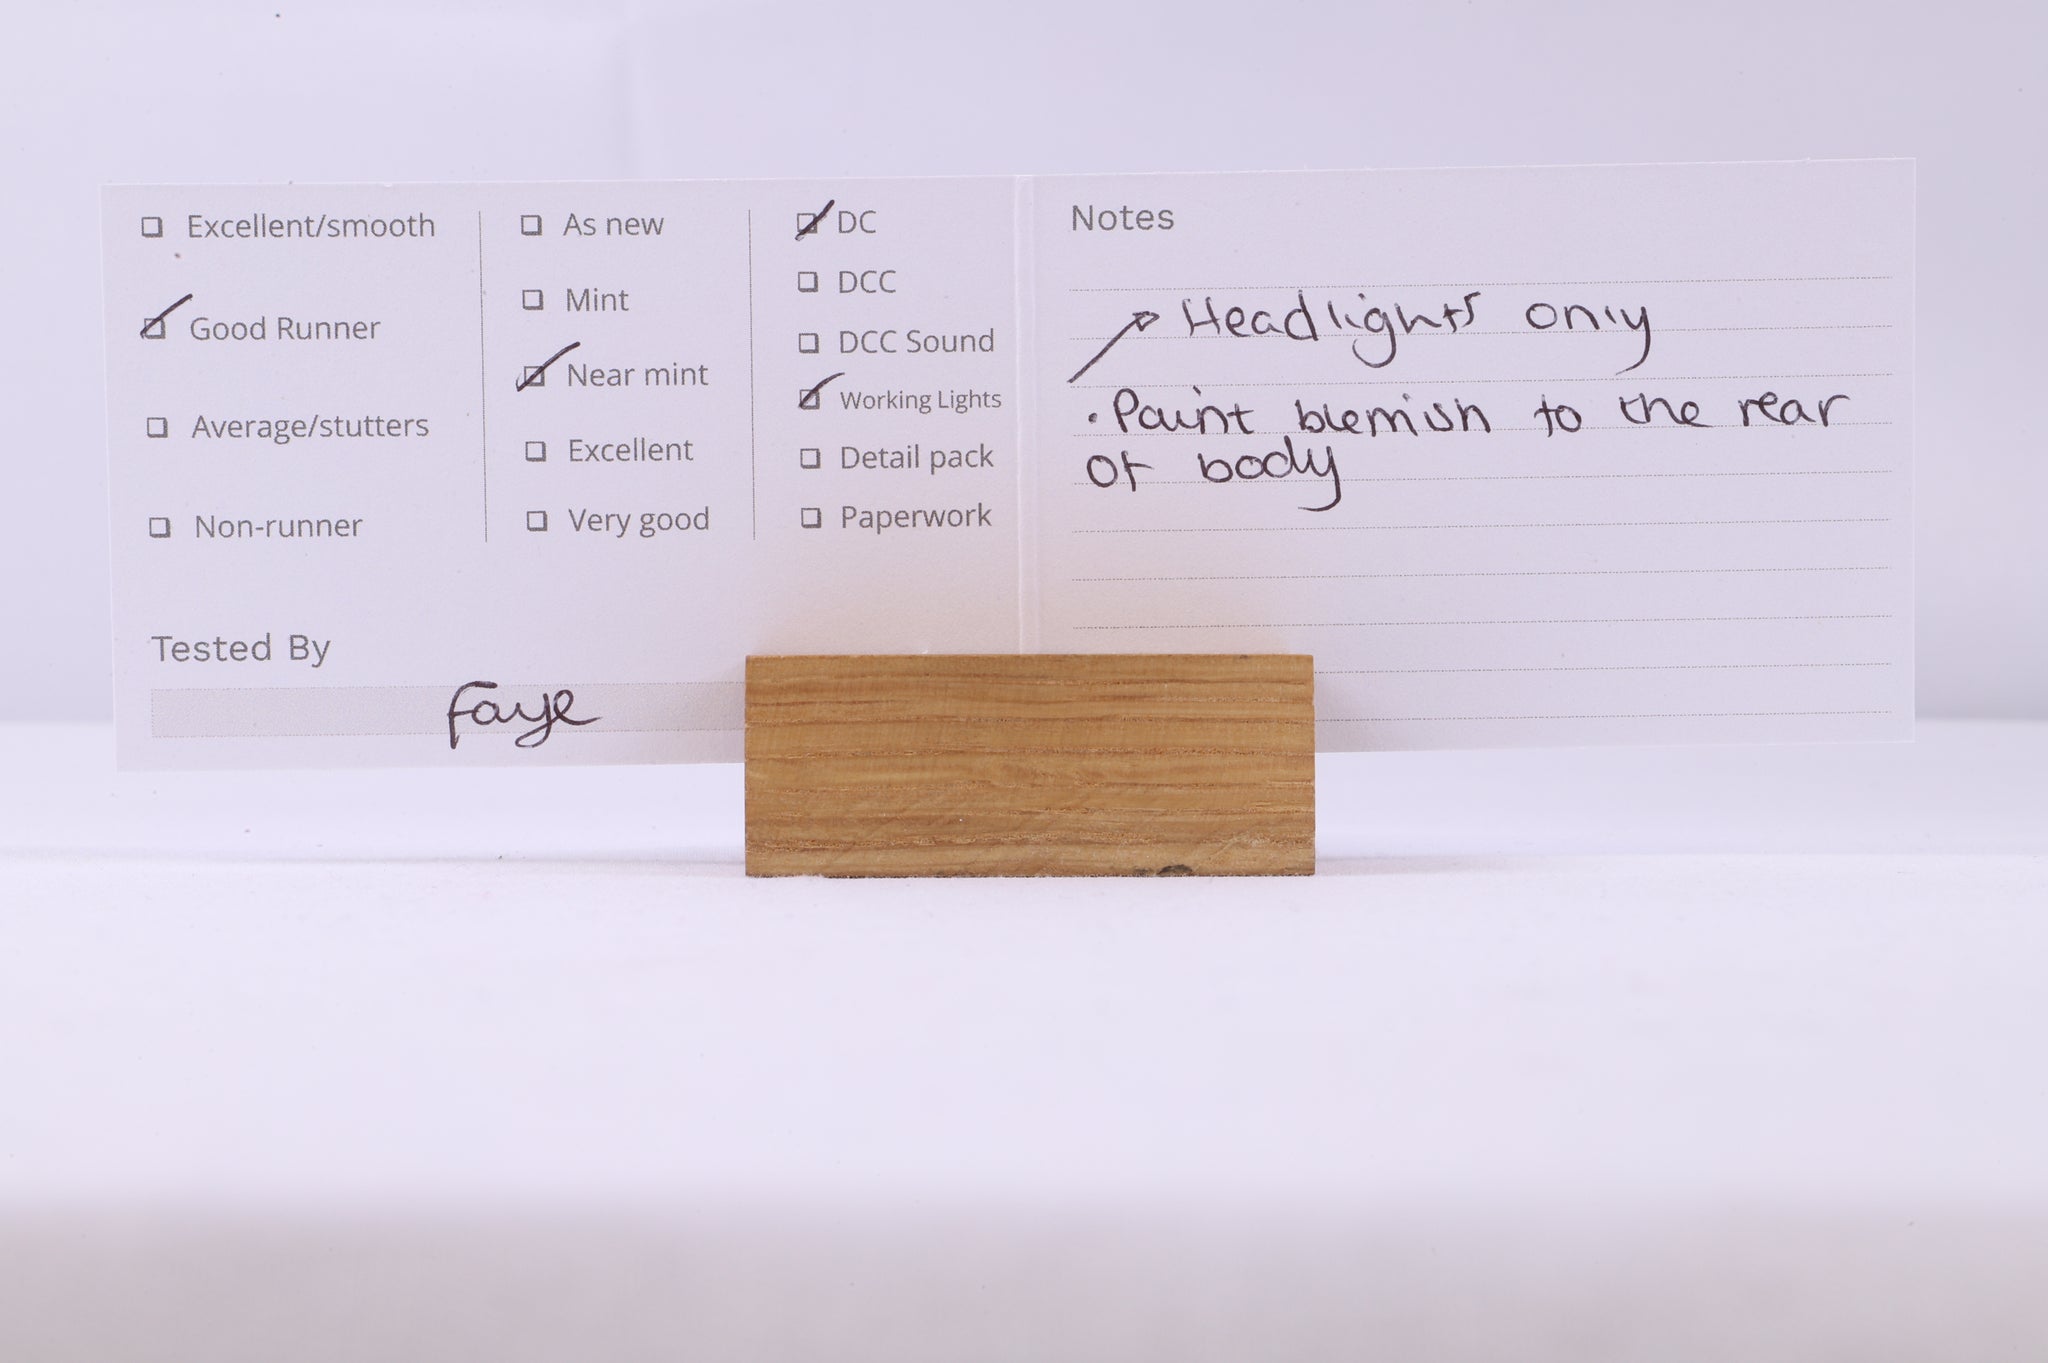 Excellent/smooth
Good Runner
Average/stutters
Non-runner
As new
Mint
Near mint
Excellent
Very good
DC
DCC
DCC Sound
Working Lights
Detail pack
Paperwork
Tested By
Faye
Notes
Headlights only
· Paint blemish to the rear
of body